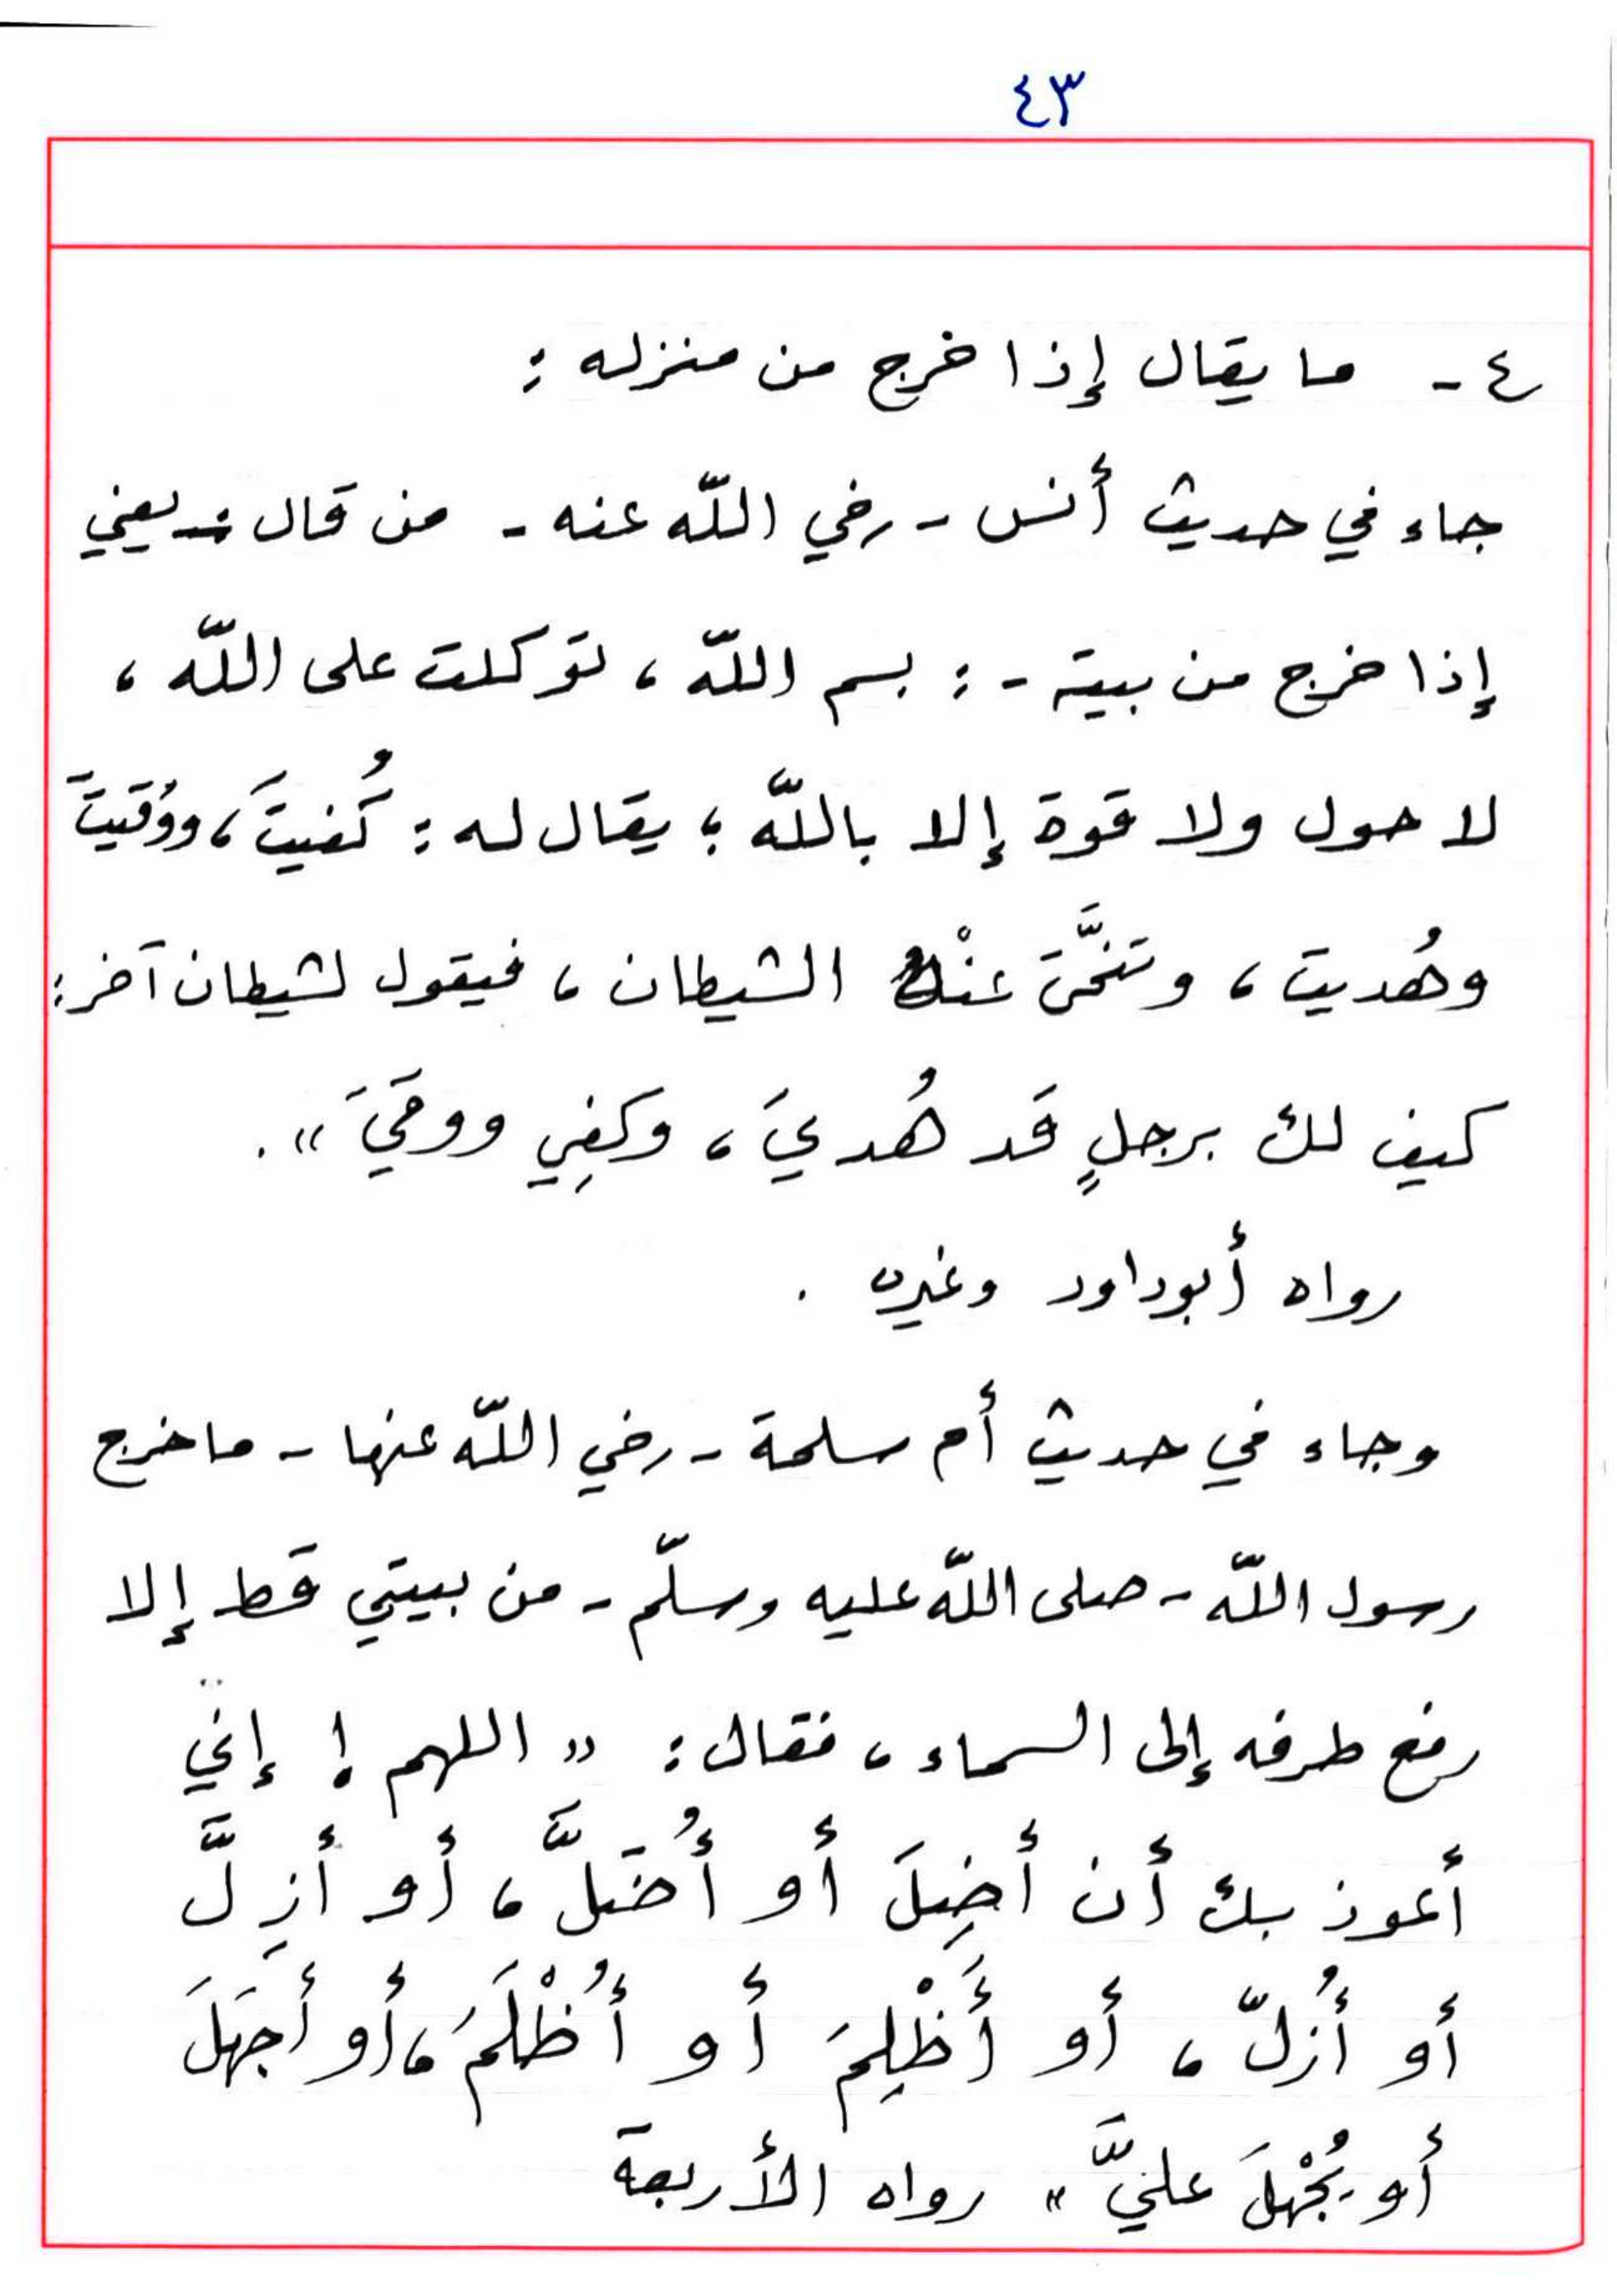 ٤٣
٤ - ما يقال إذا خرج من منزله :
جاء في حديث أنس - رضي اللّه عنه - من قال - يعني
إذا خرج من بيته - : بسم اللّه ، توكلت على اللّه ،
لا حول ولا قوة إلا باللّه ؛ يقال له : كُفيتَ ، ووُقيتَ
وهُديت ، وتنحَّى عنْه الشيطان ، فيقول لشيطان آخر :
كيف لك برجلٍ قد هُديَ ، وكفِي ووقيَ " .
رواه أبو داود وغيره .
وجاء في حديث أم سلمة - رضي اللّه عنها - ما خرج
رسول اللّه - صلى اللّه عليه وسلّم - من بيتي قط إلا
رفع طرفه إلى السماء ، فقال : " اللهم ! إني
أعوذ بك أن أضِلَ أو أُضَلَّ ، أو أزِلَّ
أو أُزلّ ، أو أَظْلِمَ أو أُظْلَمَ ، أو أجهَلَ
أو يُجْهلَ عليَّ " رواه الأربعة